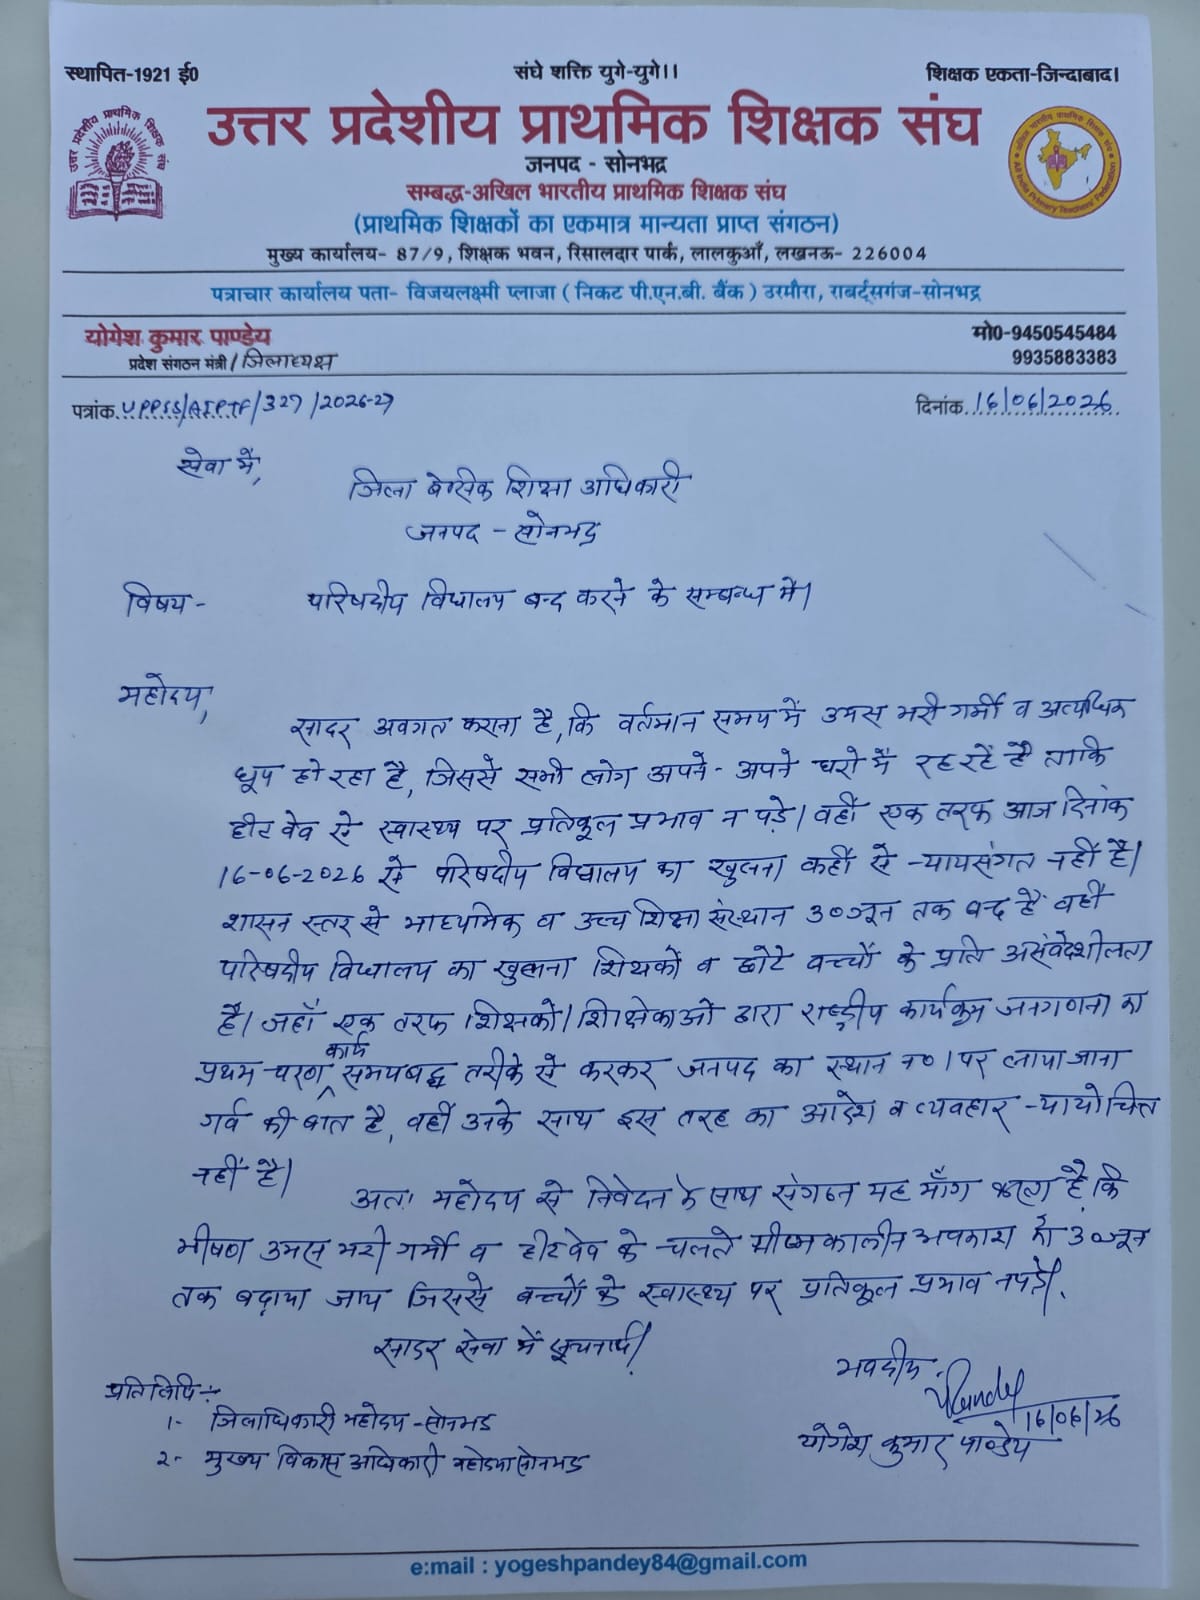 स्थापित-1921 ई0
संघे शक्ति युगे-युगे।।
शिक्षक एकता-जिन्दाबाद।
उत्तर प्रदेशीय प्राथमिक शिक्षक संघ
उत्तर प्रदेशीय प्राथमिक शिक्षक संघ
अखिल भारतीय प्राथमिक शिक्षक संघ
All India Primary Teachers' Federation
जनपद - सोनभद्र
सम्बद्ध-अखिल भारतीय प्राथमिक शिक्षक संघ
(प्राथमिक शिक्षकों का एकमात्र मान्यता प्राप्त संगठन)
मुख्य कार्यालय- 87/9, शिक्षक भवन, रिसालदार पार्क, लालकुआँ, लखनऊ- 226004
पत्राचार कार्यालय पता- विजयलक्ष्मी प्लाजा ( निकट पी.एन.बी. बैंक ) उरमौरा, राबर्ट्सगंज-सोनभद्र
योगेश कुमार पाण्डेय
प्रदेश संगठन मंत्री / जिलाध्यक्ष
मो0-9450545484
9935883383
पत्रांक. UPPSS/AIPTF/327/2026-27
दिनांक. 16/06/2026
सेवा में,
जिला बेसिक शिक्षा अधिकारी
जनपद - सोनभद्र
विषय- परिषदीय विद्यालय बन्द करने के सम्बन्ध में।
महोदय,
सादर अवगत कराना है, कि वर्तमान समय में उमस भरी गर्मी व अत्यधिक
धूप हो रहा है, जिससे सभी लोग अपने-अपने घरो में रह रहें है ताकि
हीट वेव से स्वास्थ्य पर प्रतिकूल प्रभाव न पड़े। वहीं एक तरफ आज दिनांक
16-06-2026 से परिषदीय विद्यालय का खुलना कहीं से न्यायसंगत नहीं है।
शासन स्तर से माध्यमिक व उच्च शिक्षा संस्थान 30 जून तक बन्द हैं वहीं
परिषदीय विद्यालय का खुलना शिक्षकों व छोटे बच्चों के प्रति असंवेदशीलता
है। जहाँ एक तरफ शिक्षकों/शिक्षिकाओं द्वारा राष्ट्रीय कार्यक्रम जनगणना का
प्रथम चरण कार्य समयबद्ध तरीके से करकर जनपद का स्थान न0 1 पर लाया जाना
गर्व की बात है, वहीं उनके साथ इस तरह का आदेश व व्यवहार न्यायोचित
नहीं है।
अतः महोदय से निवेदन के साथ संगठन यह माँग करता है कि
भीषण उमस भरी गर्मी व हीटवेव के चलते ग्रीष्मकालीन अवकाश को 30 जून
तक बढ़ाया जाय जिससे बच्चों के स्वास्थ्य पर प्रतिकूल प्रभाव न पड़े।
सादर सेवा में सूचनार्थ।
भवदीय
16/06/26
योगेश कुमार पाण्डेय
प्रतिलिपि:-
1- जिलाधिकारी महोदय-सोनभद्र
2- मुख्य विकास अधिकारी महोदय सोनभद्र
e:mail : yogeshpandey84@gmail.com